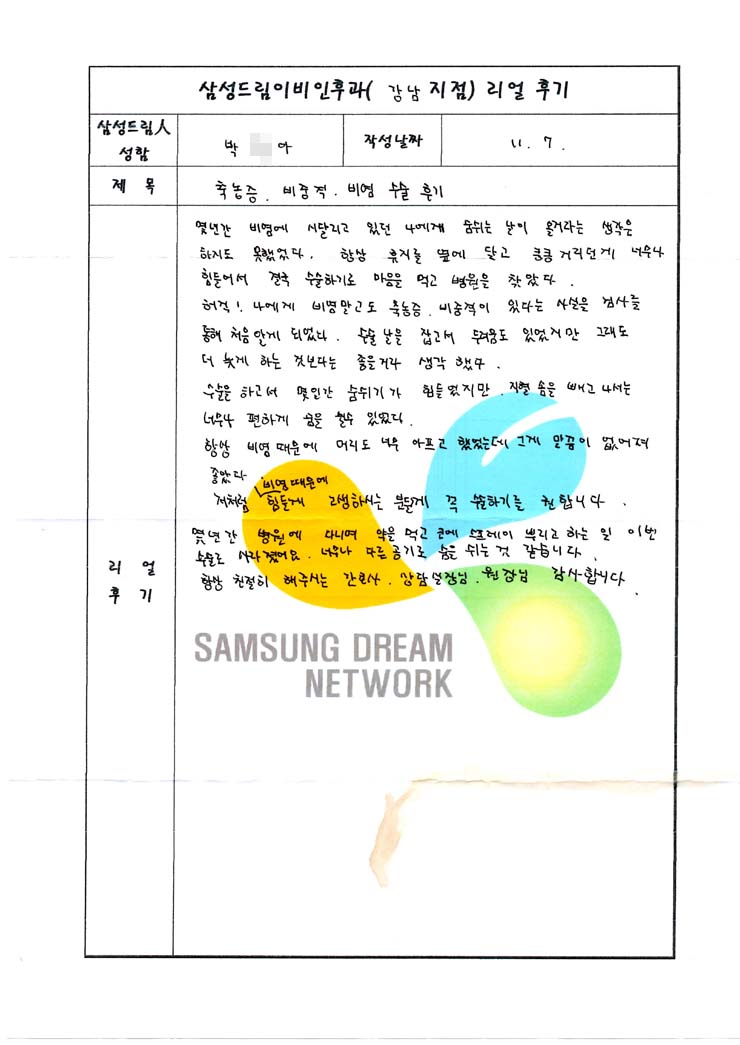 삼성드림이비인후과( 강남 지점) 리얼 후기
삼성드림人
성함
박 아
작성날짜
11. 7.
제 목
축농증. 비중격. 비염 수술 후기
몇년간 비염에 시달리고 있던 나에게 숨쉬는 날이 올거라는 생각은
하지도 못했었다. 항상 휴지를 옆에 달고 킁킁거리던게 너무나
힘들어서 결국 수술하기로 마음을 먹고 병원을 찾았다.
허걱! 나에게 비염말고도 축농증. 비중격이 있다는 사실을 검사를
통해 처음알게 되었다. 수술 날을 잡고서 두려움도 있었지만 그래도
더 늦게 하는 것보다는 좋을거라 생각 했다.
수술을 하고서 몇일간 숨쉬기가 힘들었지만. 지혈 솜을 빼고 나서는
너무나 편하게 숨을 쉴수 있었다.
항상 비염때문에 머리도 너무 아프고 했었는데 그게 말끔이 없어져
좋았다.
비염때문에
저처럼 힘들게 고생하시는 분들께 꼭 수술하기를 권합니다.
몇년간 병원에 다니며 약을 먹고 코에 스프레이 뿌리고 하는 일 이번
수술로 사라졌어요. 너무나 다른공기로 숨을 쉬는것 같습니다.
항상 친절히 해주시는 간호사. 상담실장님. 원장님 감사합니다.
리 얼
후 기
SAMSUNG DREAM
NETWORK